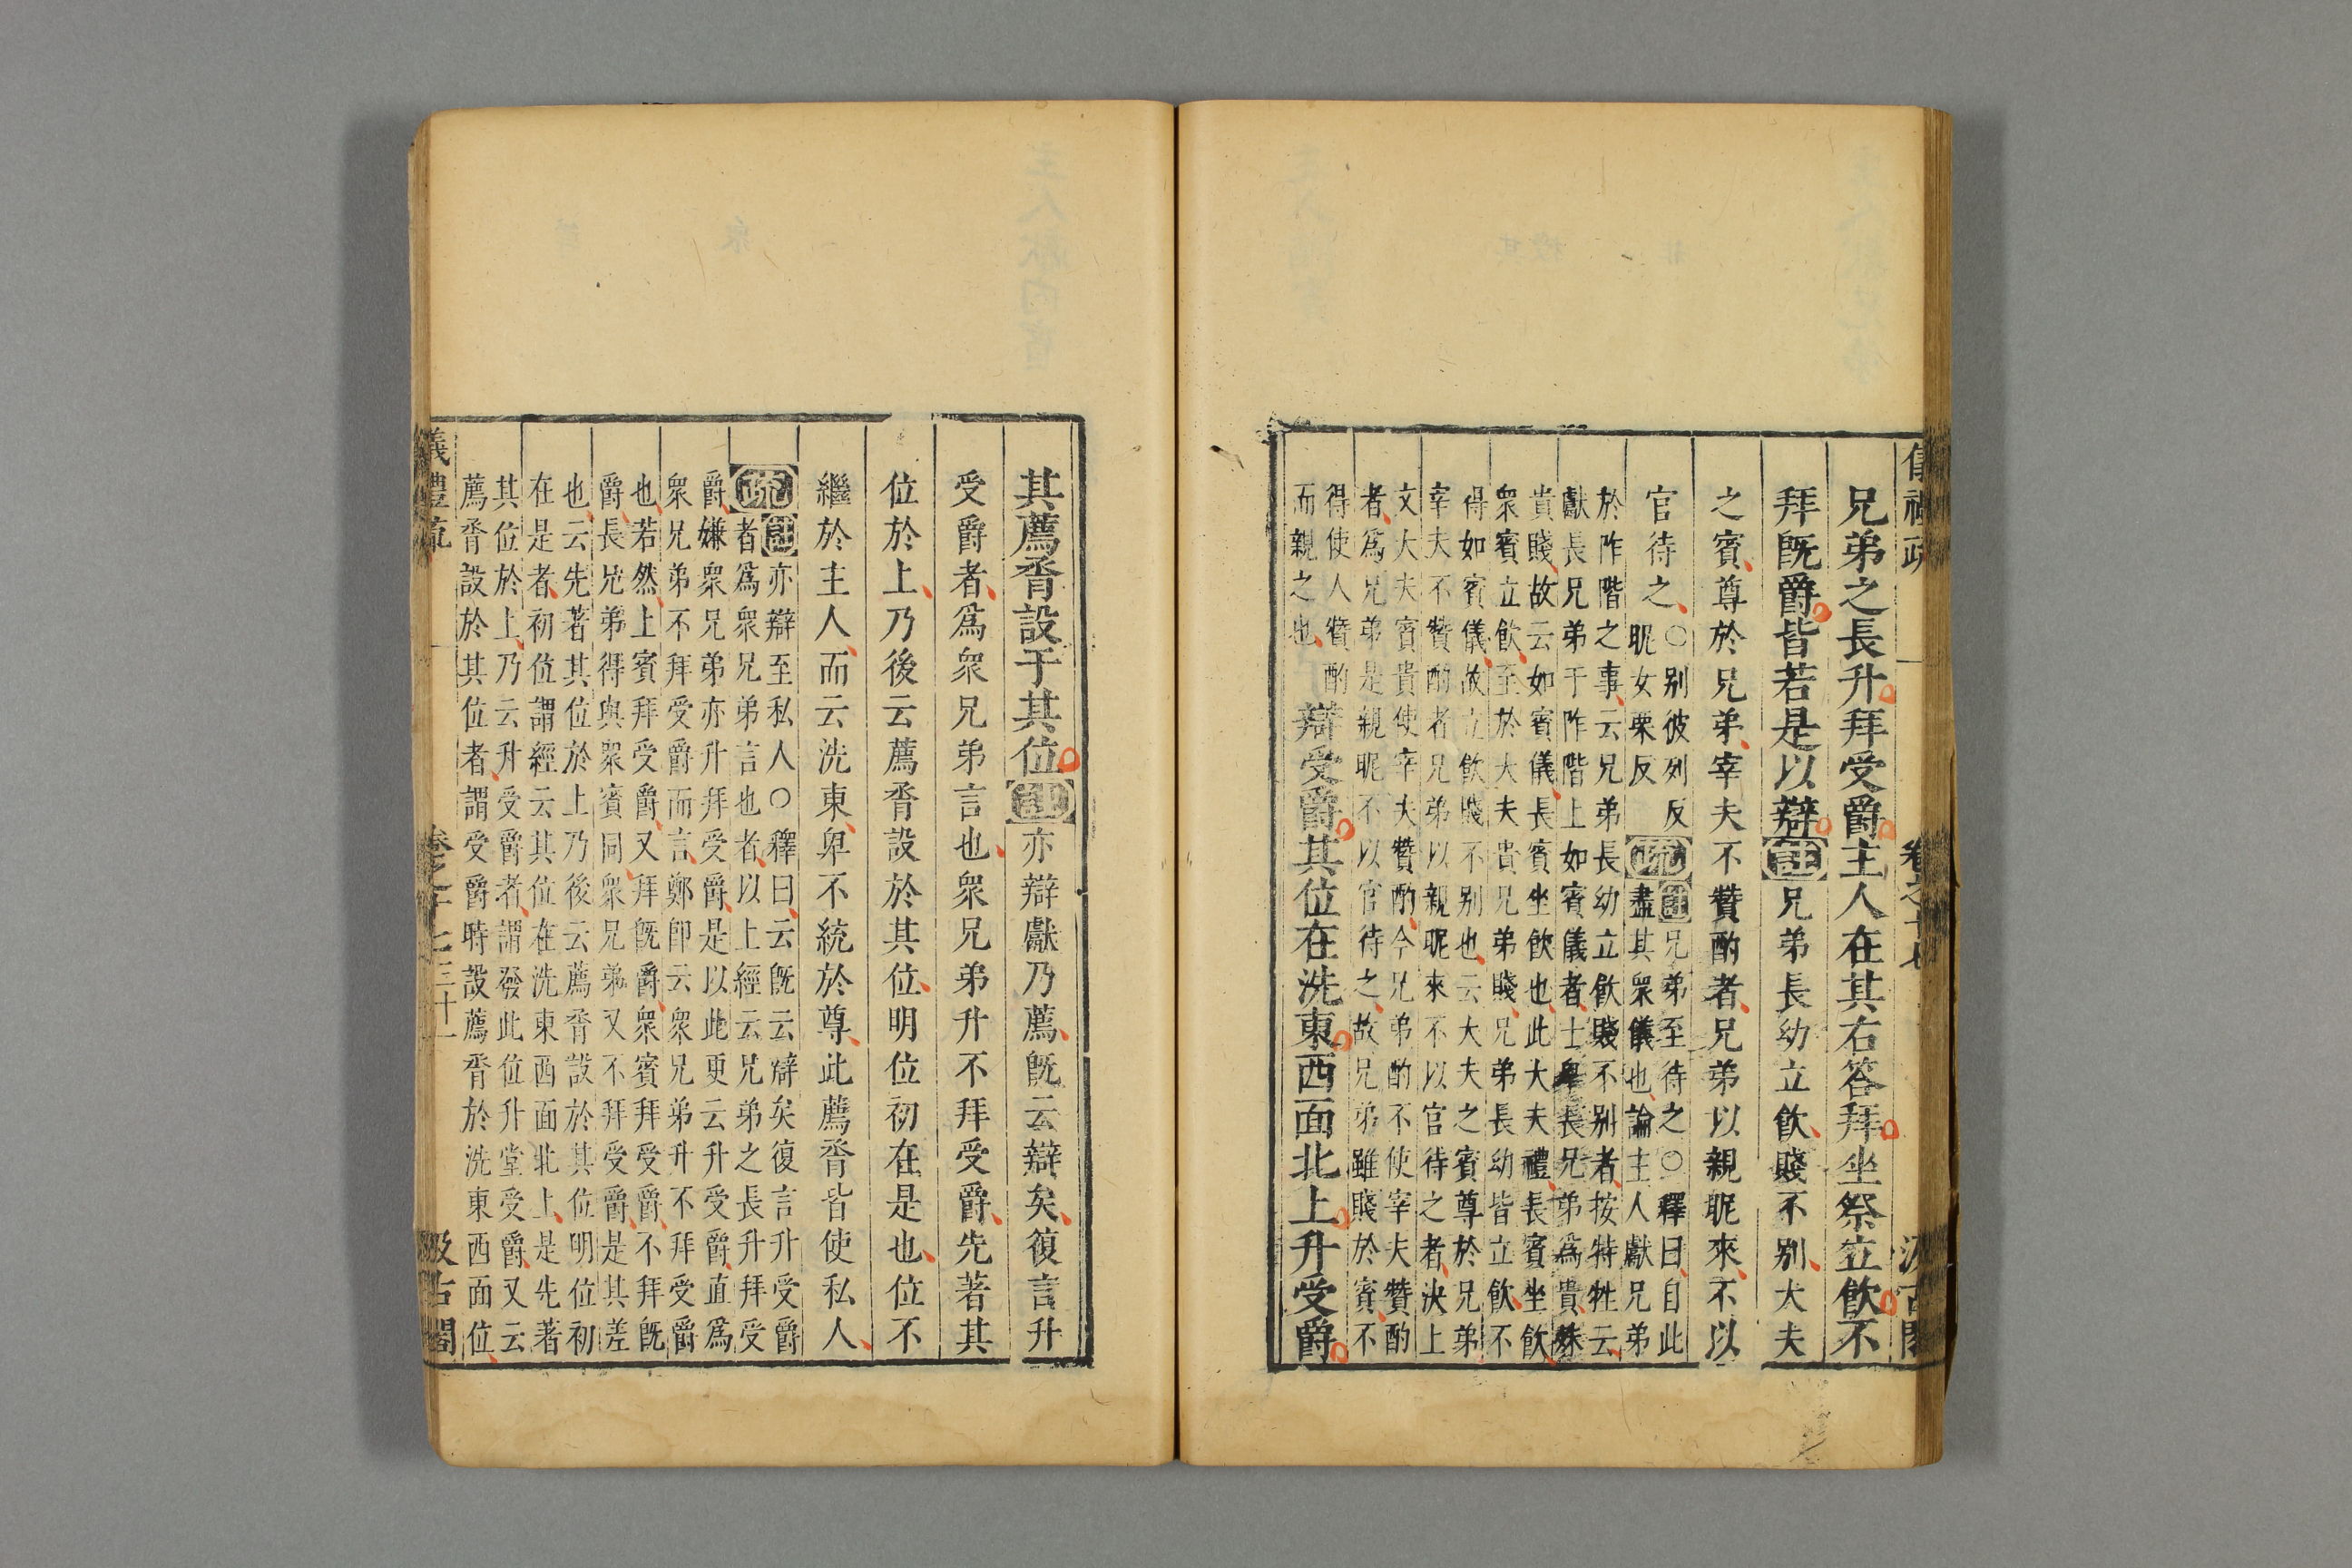 儀禮疏 卷之十七 汲古閣
兄弟之長升拜受爵主人在其右答拜坐祭立飲不
拜既爵皆若是以辯註兄弟長幼立飲賤不别大夫
之賓尊於兄弟宰夫不贊酌者兄弟以親昵來不以
官待之
○别彼列反
昵女栗反
疏註兄弟至待之○釋曰自此
盡其衆儀也論主人獻兄弟
於阼階之事云兄弟長幼立飲賤不别者按特牲云
獻長兄弟于阼階上如賓儀者士卑長兄弟爲貴殊
貴賤故云如賓儀長賓坐飲也此大夫禮長賓坐飲
衆賓立飲至於大夫貴兄弟賤兄弟長幼皆立飲不
得如賓儀故立飲賤不别也云大夫之賓尊於兄弟
宰夫不贊酌者兄弟以親昵來不以官待之者決上
文大夫賓貴使宰夫贊酌今兄弟酌不使宰夫贊酌
者爲兄弟是親昵不以官待之故兄弟雖賤於賓不
得使人贊酌
而親之也
辯受爵其位在洗東西面北上升受爵
其薦脀設于其位註亦辯獻乃薦既云辯矣復言升
受爵者爲衆兄弟言也衆兄弟升不拜受爵先著其
位於上乃後云薦脀設於其位明位初在是也位不
繼於主人而云洗東卑不統於尊此薦脀皆使私人
疏註亦辯至私人○釋曰云既云辯矣復言升受爵
者爲衆兄弟言也者以上經云兄弟之長升拜受
爵嫌衆兄弟亦升拜受爵是以此更云升受爵直爲
衆兄弟不拜受爵而言鄭卽云衆兄弟升不拜受爵
也若然上賓拜受爵又拜既爵衆賓拜受爵不拜既
爵長兄弟得與衆賓同衆兄弟又不拜受爵是其差
也云先著其位於上乃後云薦脀設於其位明位初
在是者初位謂經云其位在洗東西面北上是先著
其位於上乃云升受爵者謂發此位升堂受爵又云
薦脀設於其位者謂受爵時設薦脀於洗東西面位
儀禮疏 卷之十七 三十一 汲古閣